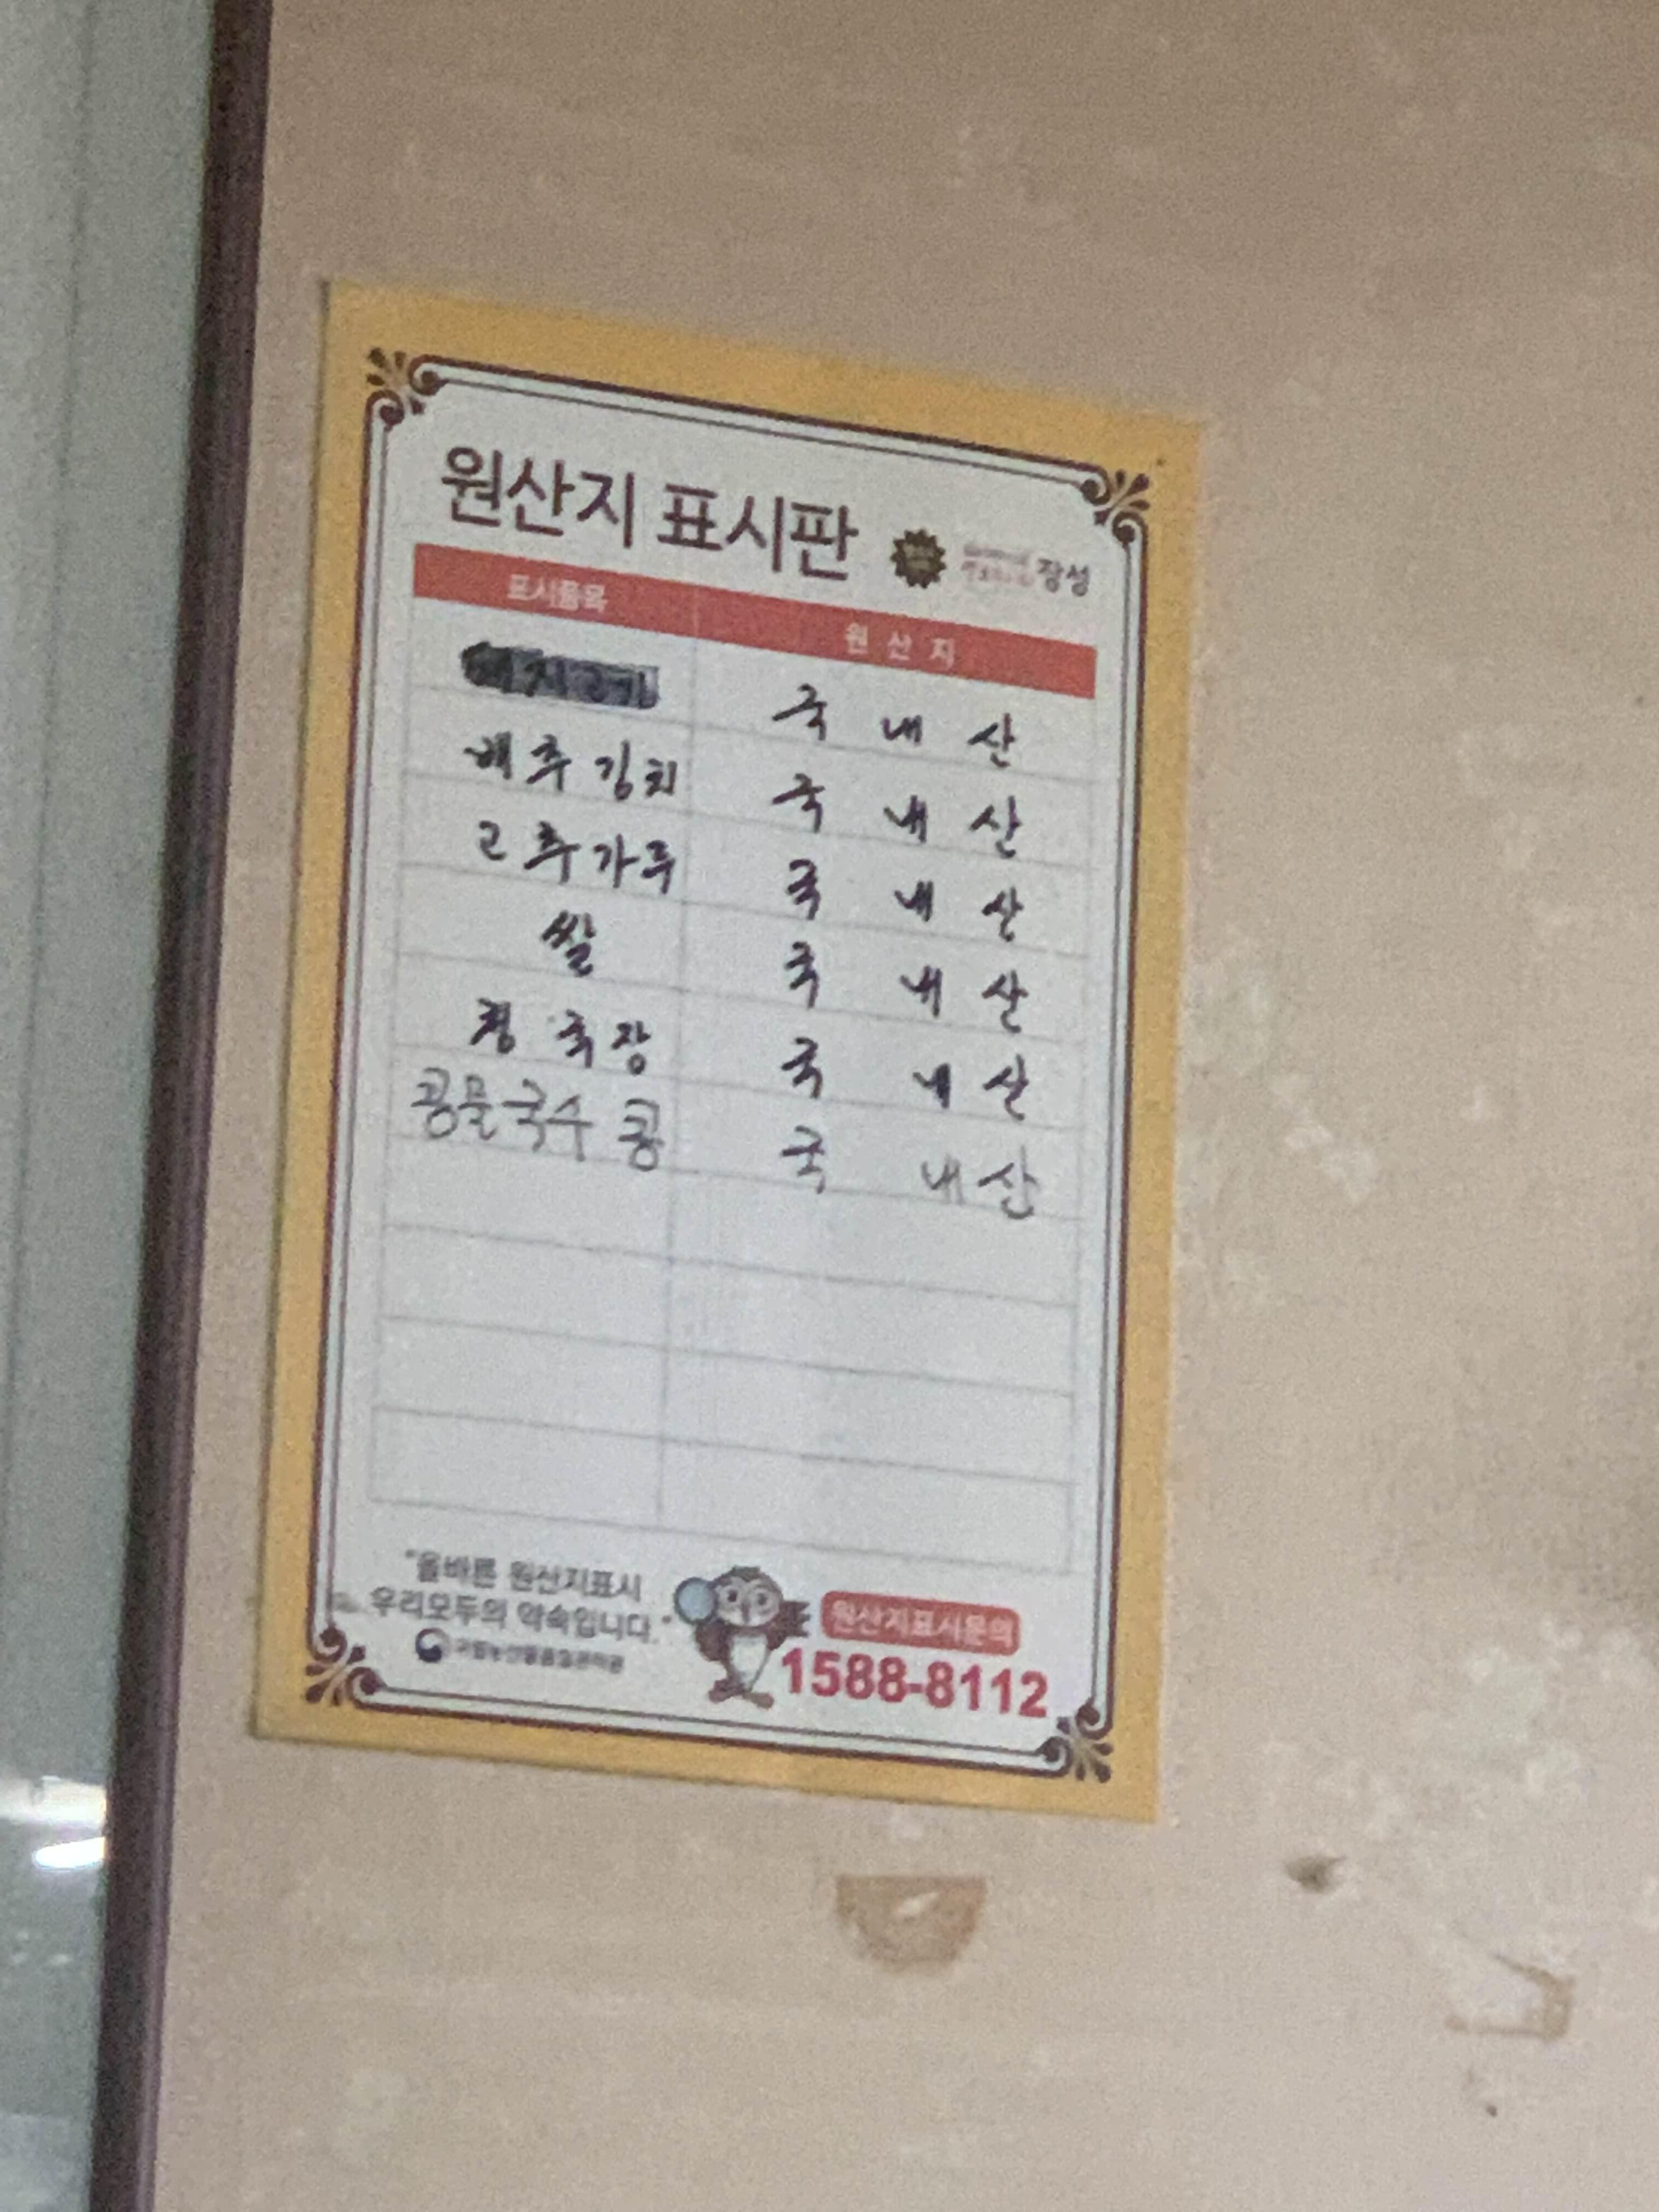 원산지 표시판
장성
표시품목 원 산 지
국 내 산
배추김치 국 내 산
고추가루 국 내 산
쌀 국 내 산
청국장 국 내 산
콩물국수 콩 국 내 산
"올바른 원산지표시
우리모두의 약속입니다."
국립농산물품질관리원
원산지표시문의
1588-8112